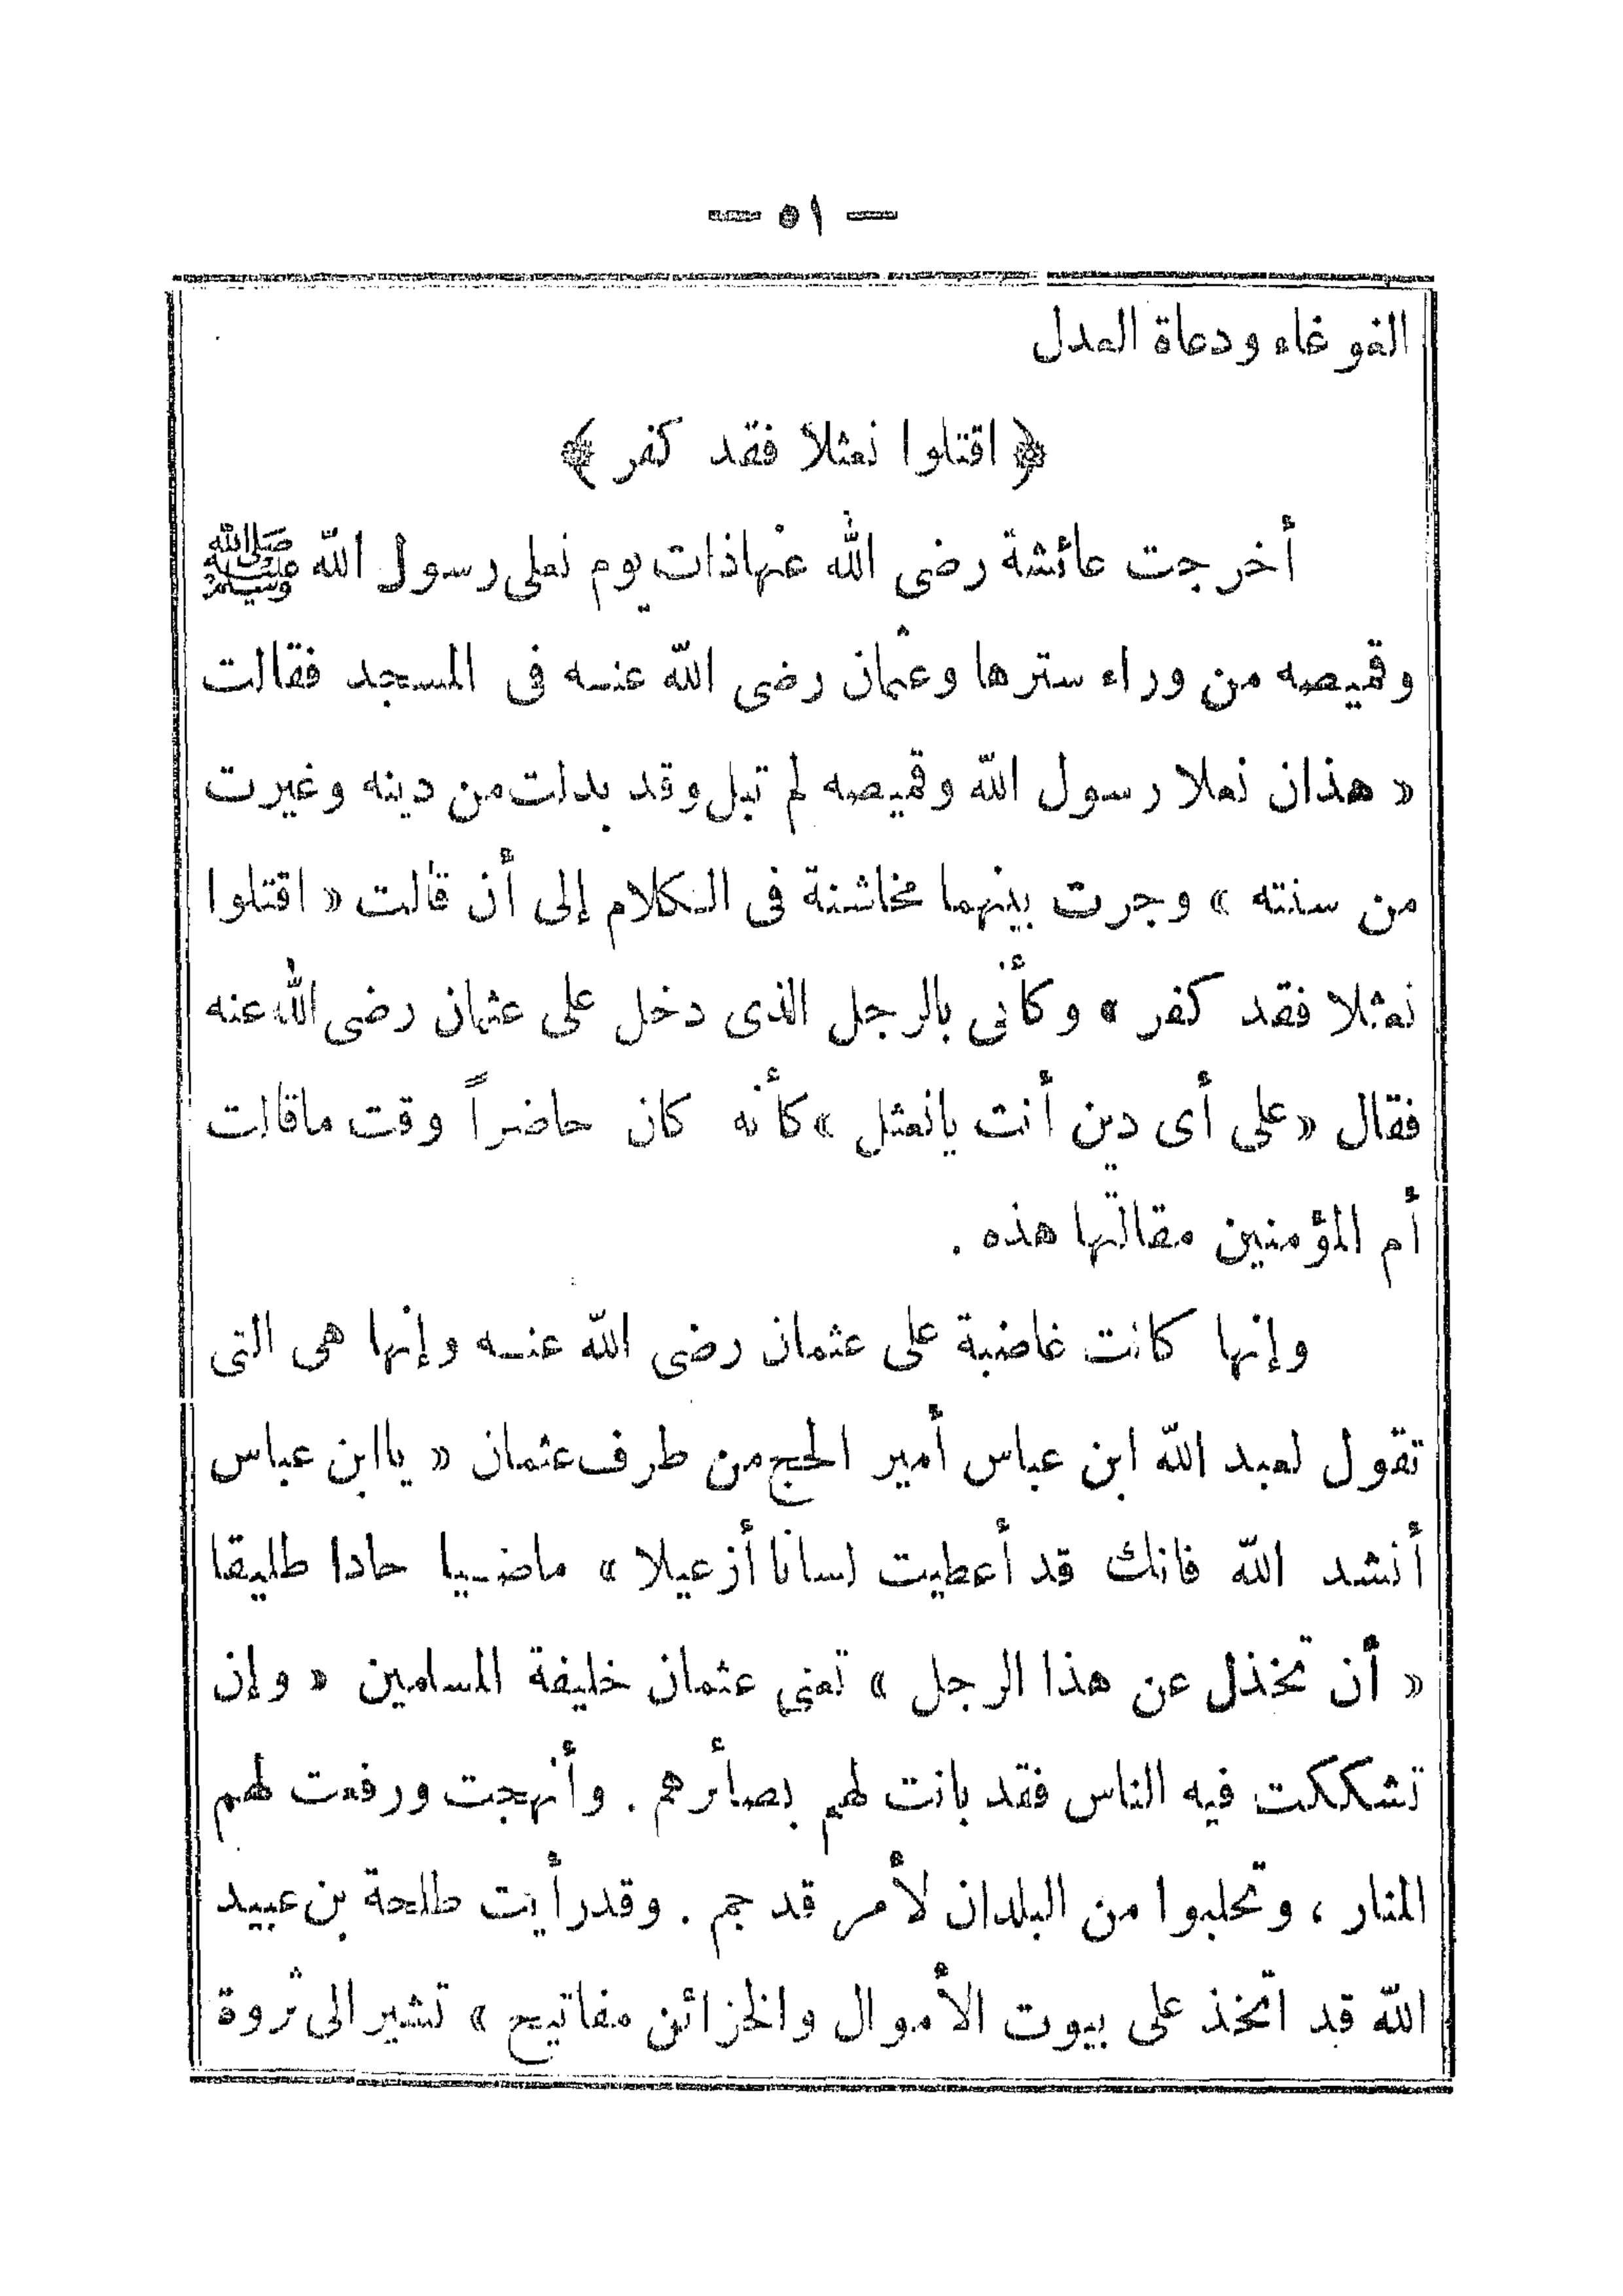 — ٥١ —
الغوغاء ودعاة العدل
﴿ اقتلوا نعثلا فقد كفر ﴾
أخرجت عائشة رضى الله عنها ذات يوم نعلى رسول الله ﷺ
وقميصه من وراء سترها وعثمان رضى الله عنه فى المسجد فقالت
« هذان نعلا رسول الله وقميصه لم تبل وقد بدلت من دينه وغيرت
من سنته » وجرت بينهما مخاشنة فى الكلام إلى أن قالت « اقتلوا
نعثلا فقد كفر » وكأنى بالرجل الذى دخل على عثمان رضى الله عنه
فقال « على أى دين أنت يانعثل » كأنه كان حاضراً وقت ماقالت
أم المؤمنين مقالتها هذه .
وإنها كانت غاضبة على عثمان رضى الله عنه وإنها هى التى
تقول لعبد الله ابن عباس أمير الحج من طرف عثمان « ياابن عباس
أنشد الله فانك قد أعطيت لسانا أزعيلا » ماضيا حادا طليقا
« أن تخذل عن هذا الرجل » تعنى عثمان خليفة المسلمين « وإن
تشككت فيه الناس فقد بانت لهم بصأرهم . وأنهجت ورفعت لهم
المنار ، وتحلبوا من البلدان لأمر قد جم . وقد رأيت طلحة بن عبيد
الله قد اتخذ على بيوت الأموال والخزائن مفاتيح » تشير الى ثروة